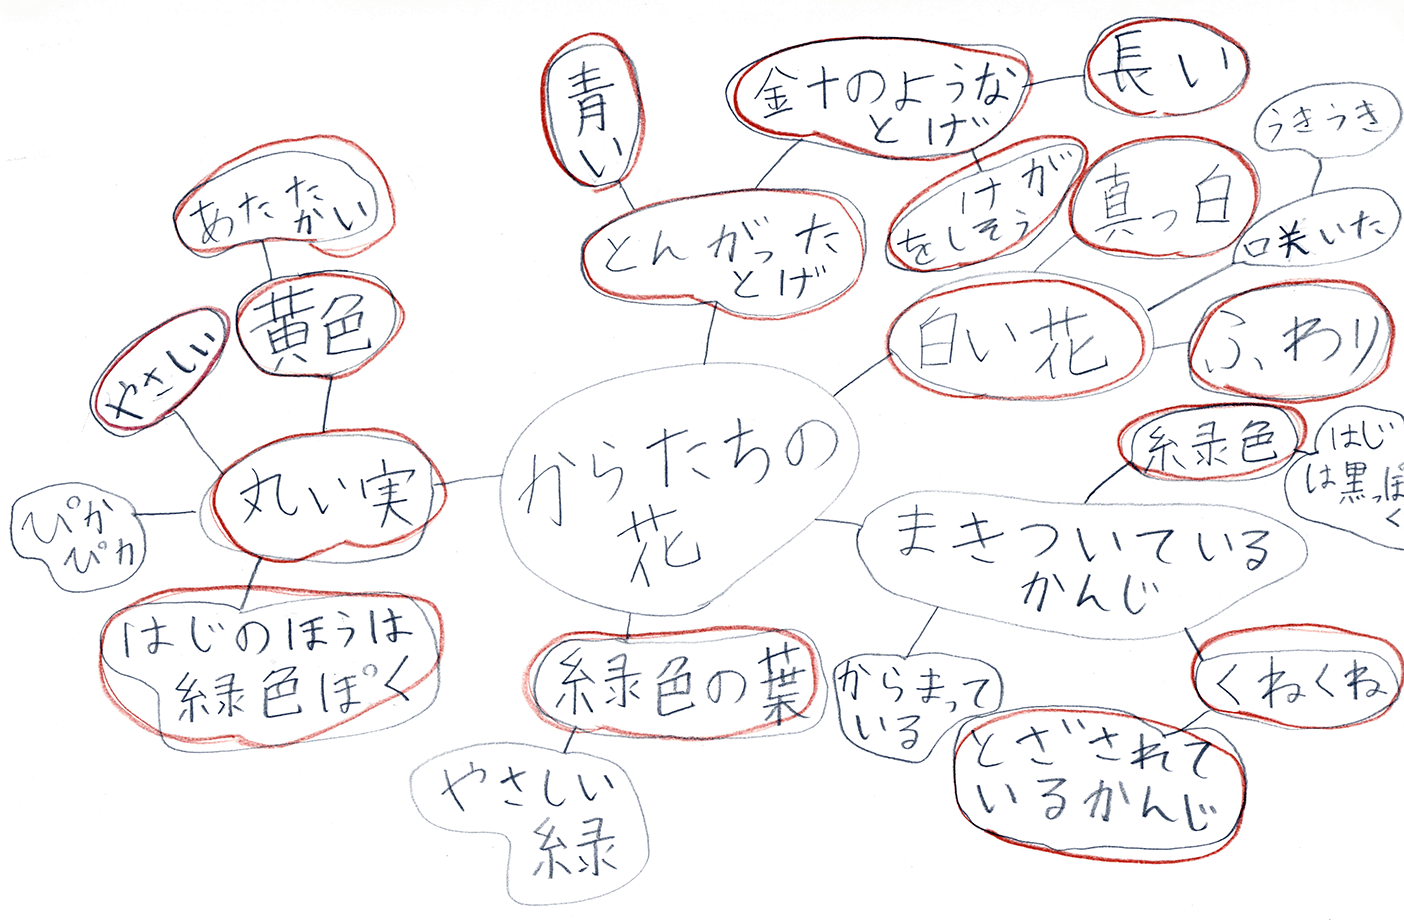 青い
金十のような
とげ
長い
うきうき
あたた
かい
とんがった
とげ
けが
をしそう
真っ白
咲いた
やさしい
黄色
白い花
ふわり
からたちの
花
丸い実
ぴか
ぴか
緑色
はじ
は黒っぽ
く
まきついている
かんじ
はじのほうは
緑色ぽく
緑色の葉
からまって
いる
くねくね
とざされて
いるかんじ
やさしい
緑